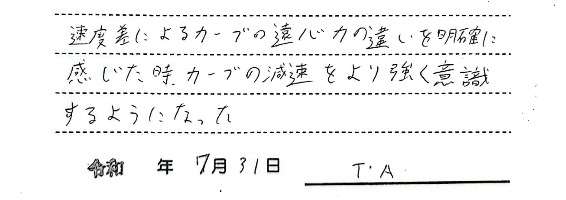 速度差によるカーブの遠心力の違いを明確に
感じた時、カーブの減速をより強く意識
するようになった
令和 年 7月31日 T.A.